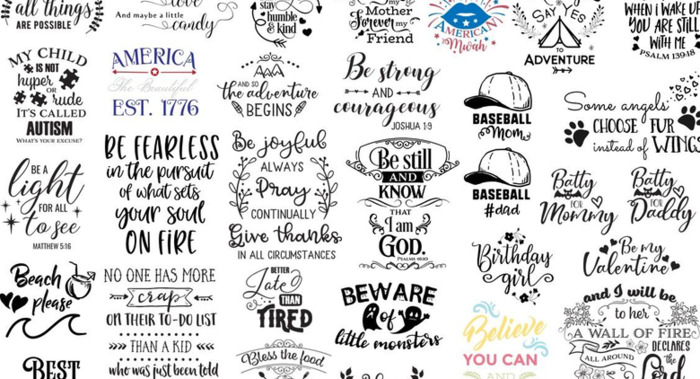 all things
ARE POSSIBLE
love
And maybe a little
candy
stay
humble
& kind
Mother
Forever my
Friend
AMERICAN
Mwah
SAY YES
TO
ADVENTURE
WHEN I WAKE UP
YOU ARE STILL
WITH ME
PSALM 139:18
MY CHILD
IS NOT
hyper
OR rude
IT'S CALLED
AUTISM
WHAT'S YOUR EXCUSE?
AMERICA
The Beautiful
EST. 1776
AND SO
the adventure
BEGINS
Be strong
AND
courageous
JOSHUA 1:9
BASEBALL
Mom
Some angels
CHOOSE FUR
instead of WINGS
BE A
light
FOR ALL
to see
MATTHEW 5:16
BE FEARLESS
in the pursuit
of what sets
your soul
ON FIRE
Be joyful
ALWAYS
Pray
CONTINUALLY
Give thanks
IN ALL CIRCUMSTANCES
Be still
AND
KNOW
THAT
I am
GOD.
BASEBALL
#dad
Batty
FOR
Mommy
Batty
FOR
Daddy
Beach
please
NO ONE HAS MORE
crap
ON THEIR TO-DO LIST
THAN A KID
who was just been told
BETTER
Late
THAN
TIRED
BEWARE
of
little monsters
Birthday
girl
Be my
Valentine
Believe
YOU CAN
AND
and I will be
to her
A WALL OF FIRE
ALL AROUND
DECLARES
the
Lord
BEST
Bless the food